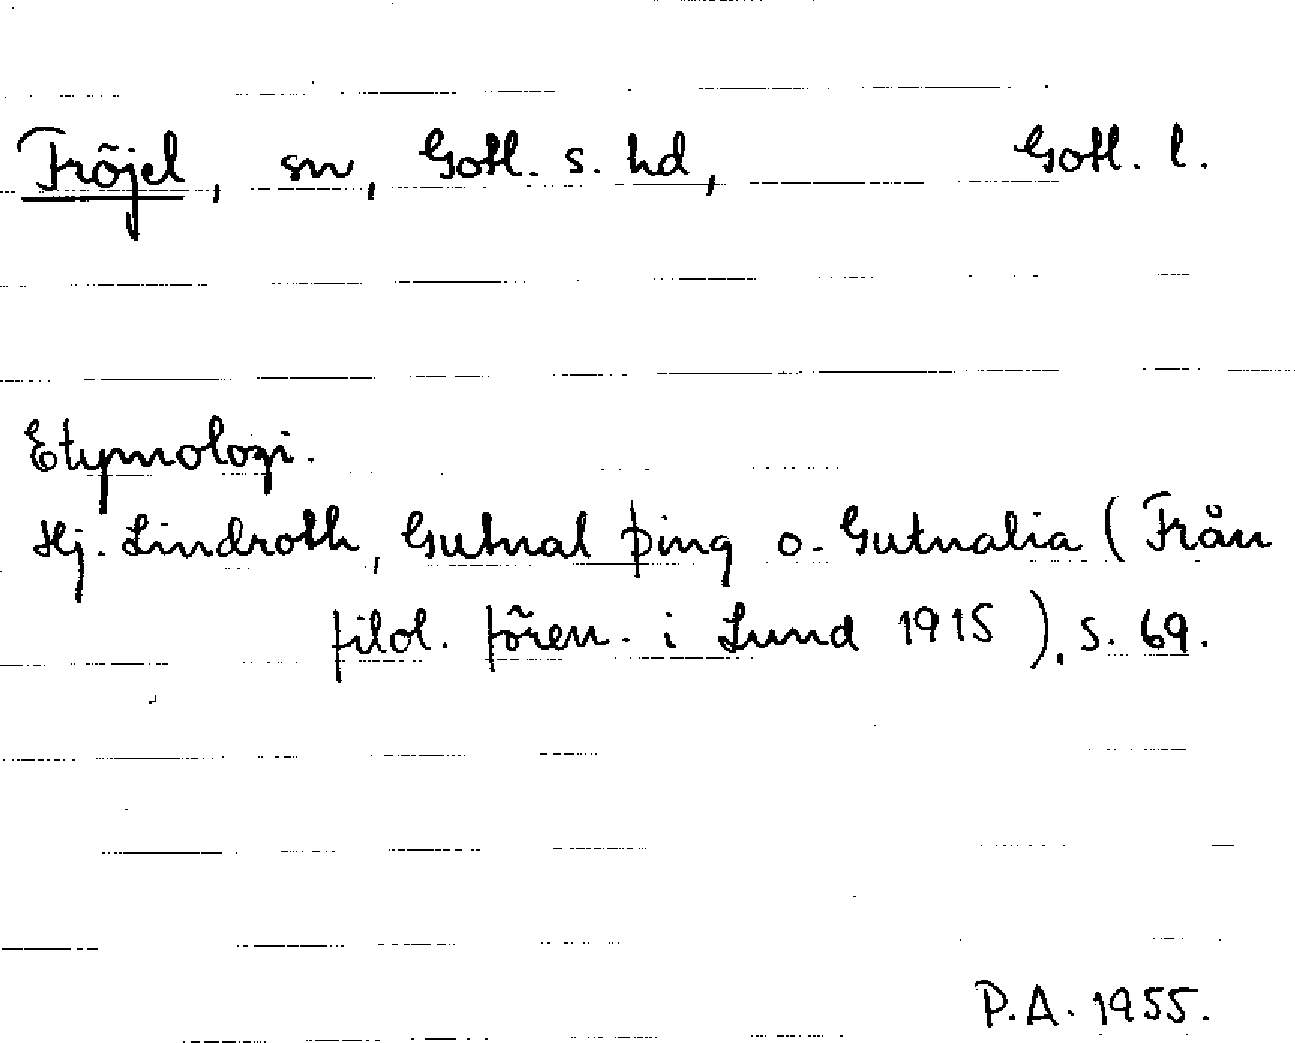 Fröjel, sn, Gotl. s. hd, Gotl. l.
Etymologi.
Hj. Lindroth, Gutnal þing o. Gutnalia (Från
filol. fören. i Lund 1915), s. 69.
P.A. 1955.